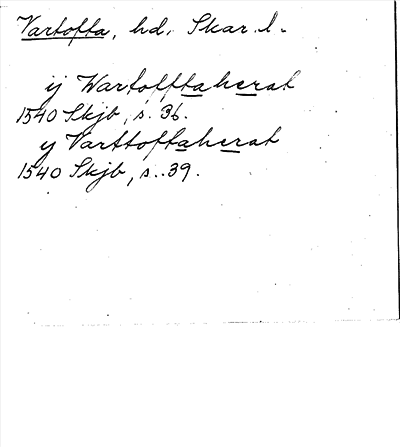 Vartofta, hd. Skar. l.
ij Wartolftaherat
1540 Skjb, s. 36.
ij Varttoftaherat
1540 Skjb, s. 39.